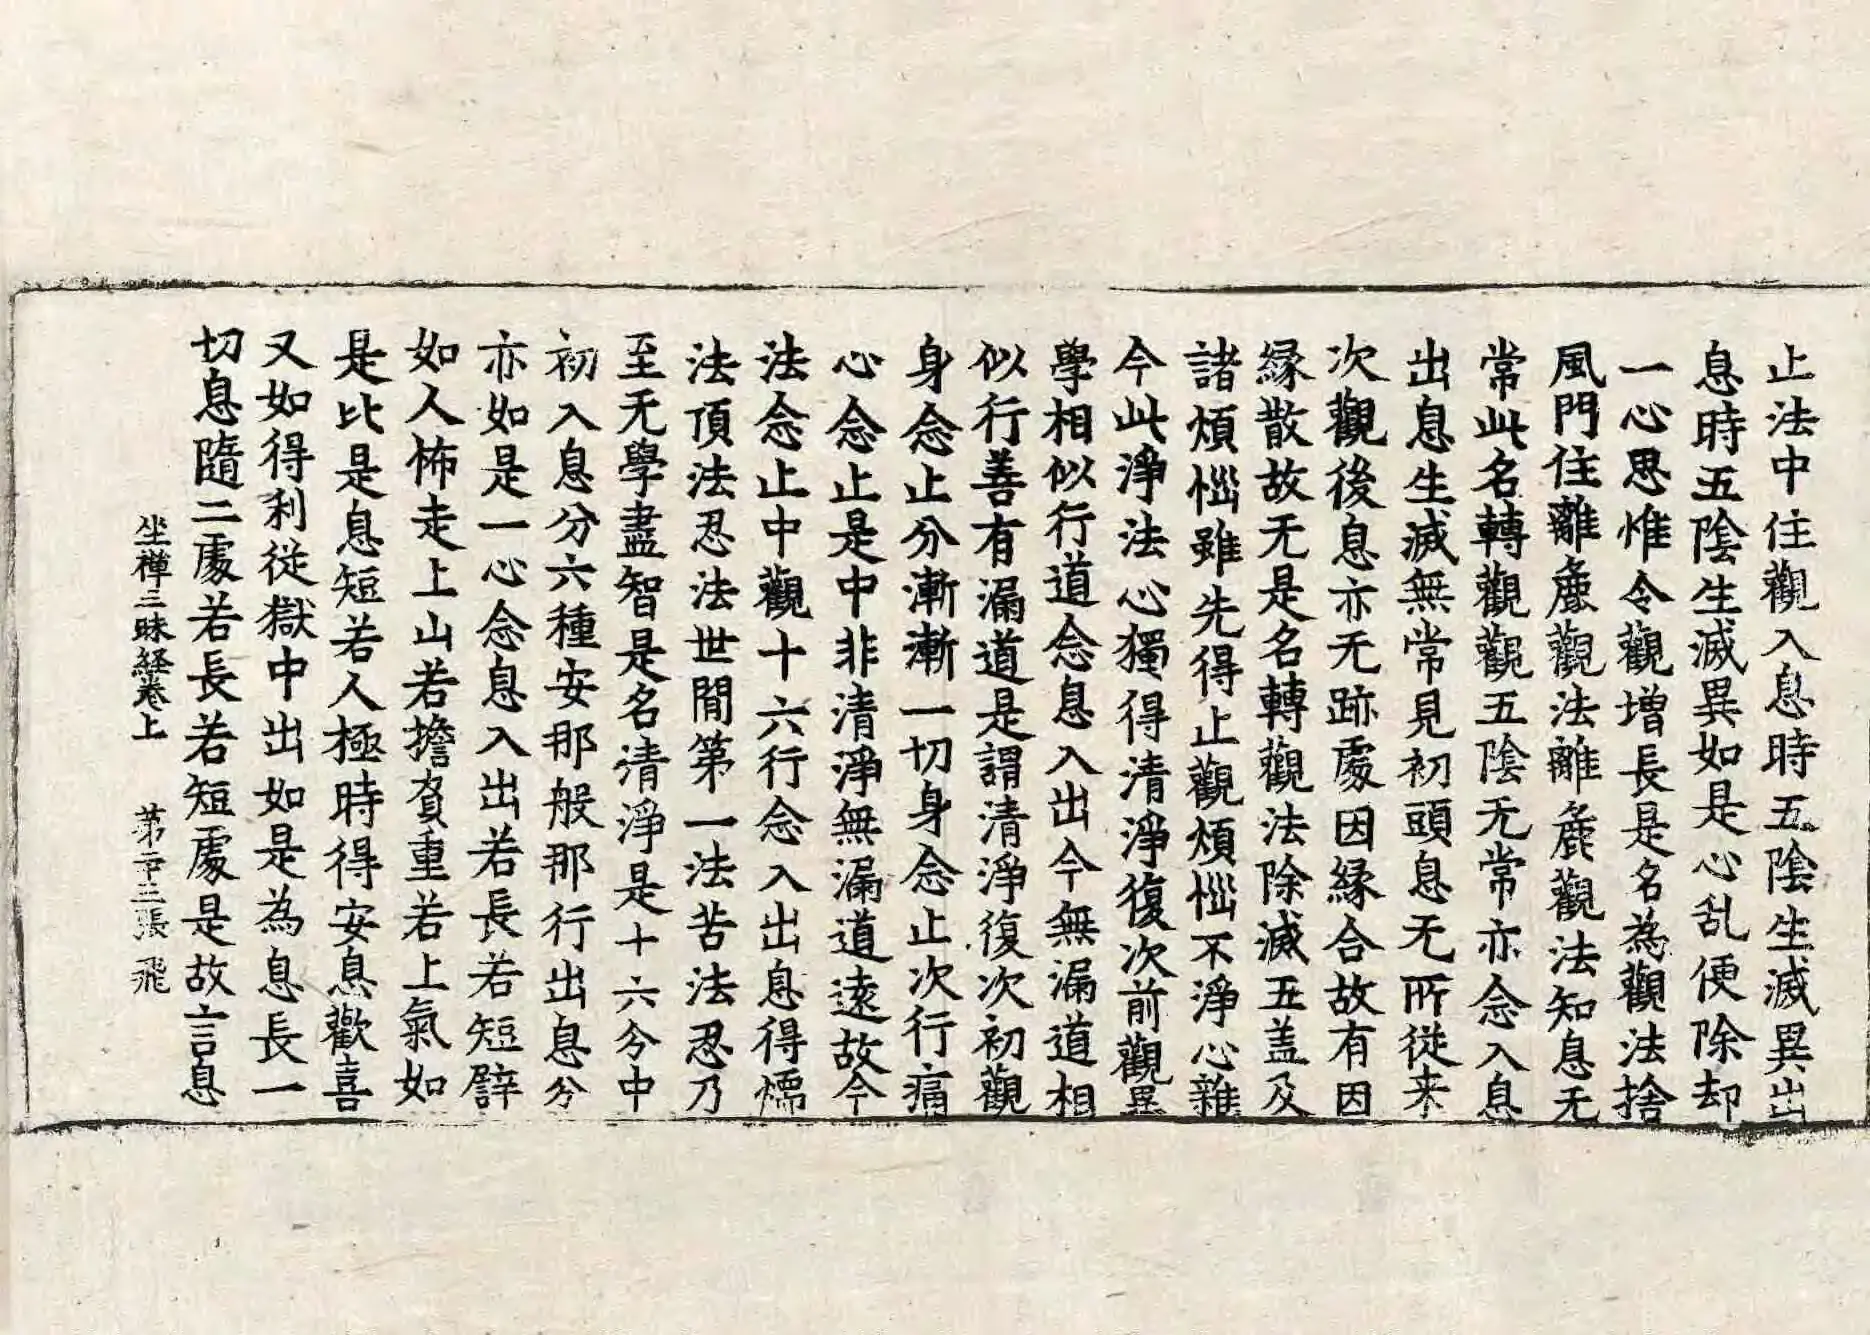 止法中住觀入息時五陰生滅異出
息時五陰生滅異如是心乱便除却
一心思惟令觀增長是名為觀法捨
風門住離麁觀法離麁觀法知息无
常此名轉觀觀五陰无常亦念入息
出息生滅無常見初頭息无所從来
次觀後息亦无跡處因緣合故有因
緣散故无是名轉觀法除滅五盖及
諸煩惱雖先得止觀煩惱不淨心雜
今此淨法心獨得清淨復次前觀異
學相似行道念息入出今無漏道相
似行善有漏道是謂清淨復次初觀
身念止分漸漸一切身念止次行痛
心念止是中非清淨無漏道遠故今
法念止中觀十六行念入出息得煗
法頂法忍法世間第一法苦法忍乃
至无學盡智是名清淨是十六分中
初入息分六種安那般那行出息分
亦如是一心念息入出若長若短譬
如人怖走上山若擔負重若上氣如
是比是息短若人極時得安息歡喜
又如得利從獄中出如是為息長一
切息隨二處若長若短處是故言息
坐禪三昧経卷上 第廿三張 飛